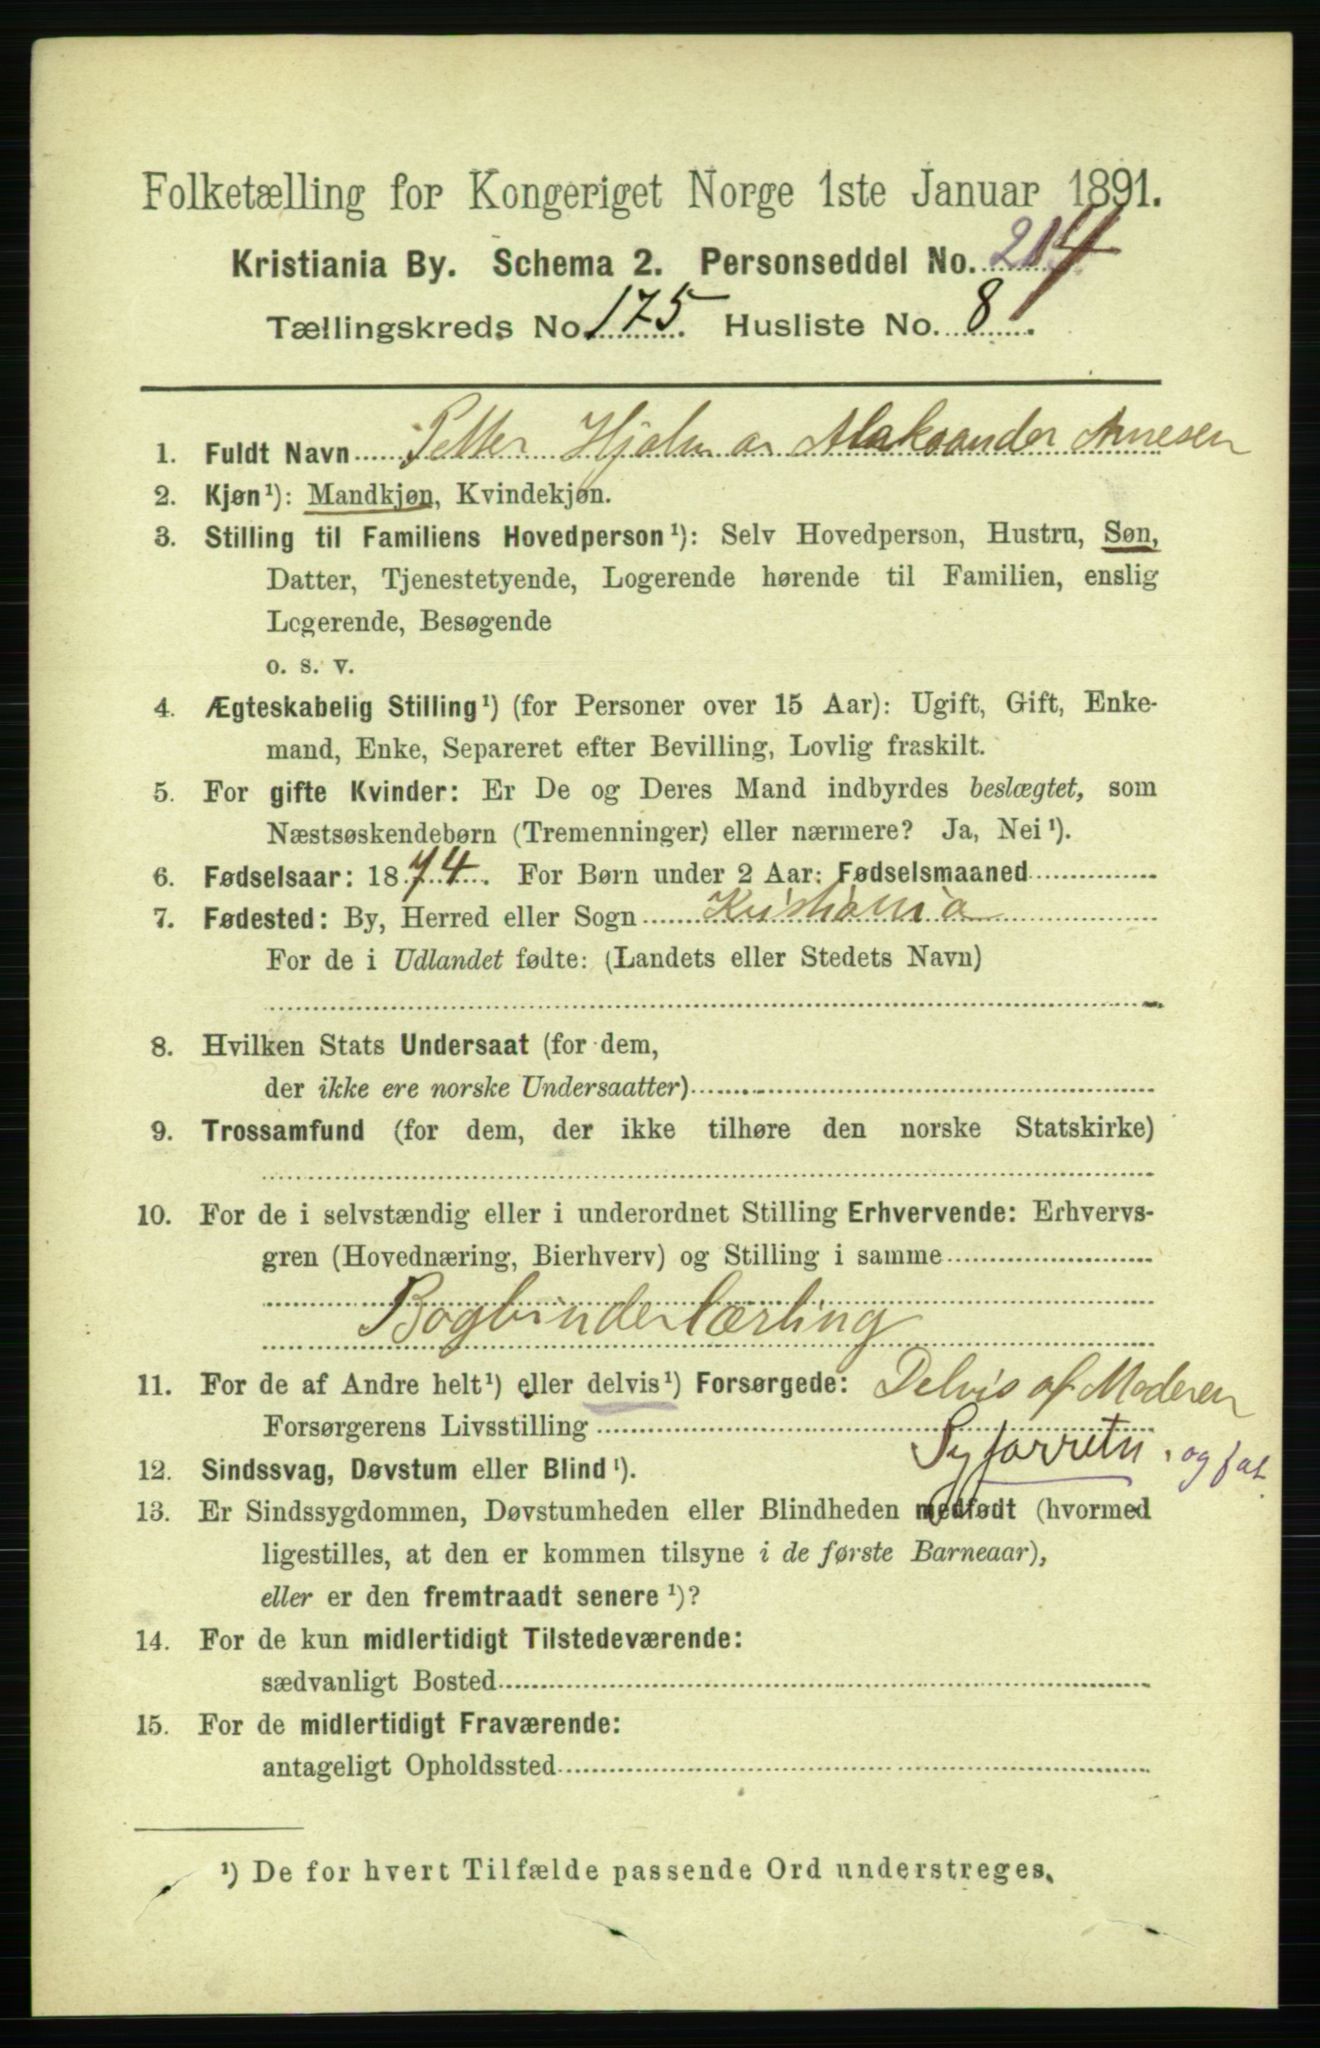 Folketælling for Kongeriget Norge 1ste Januar 1891.
Kristiania By. Schema 2. Personseddel No. 214
Tællingskreds No. 175. Husliste No. 8.
1. Fuldt Navn Petter Hjalmar Aleksander Arnesen
2. Kjøn¹): Mandkjøn, Kvindekjøn.
3. Stilling til Familiens Hovedperson¹): Selv Hovedperson, Hustru, Søn,
Datter, Tjenestetyende, Logerende hørende til Familien, enslig
Logerende, Besøgende
o. s. v.
4. Ægteskabelig Stilling¹) (for Personer over 15 Aar): Ugift, Gift, Enke-
mand, Enke, Separeret efter Bevilling, Lovlig fraskilt.
5. For gifte Kvinder: Er De og Deres Mand indbyrdes beslægtet, som
Næstsøskendebørn (Tremenninger) eller nærmere? Ja, Nei¹).
6. Fødselsaar: 1874. For Børn under 2 Aar: Fødselsmaaned
7. Fødested: By, Herred eller Sogn Kristiania
For de i Udlandet fødte: (Landets eller Stedets Navn)
8. Hvilken Stats Undersaat (for dem,
der ikke ere norske Undersaatter)
9. Trossamfund (for dem, der ikke tilhøre den norske Statskirke)
10. For de i selvstændig eller i underordnet Stilling Erhvervende: Erhvervs-
gren (Hovednæring, Bierhverv) og Stilling i samme
Bogbinderlærling
11. For de af Andre helt¹) eller delvis¹) Forsørgede: Delvis af Moderen
Forsørgerens Livsstilling
Syforretn. og fat.
12. Sindssvag, Døvstum eller Blind¹).
13. Er Sindssygdommen, Døvstumheden eller Blindheden medfødt (hvormed
ligestilles, at den er kommen tilsyne i de første Barneaar),
eller er den fremtraadt senere¹)?
14. For de kun midlertidigt Tilstedeværende:
sædvanligt Bosted
15. For de midlertidigt Fraværende:
antageligt Opholdssted
¹) De for hvert Tilfælde passende Ord understreges.